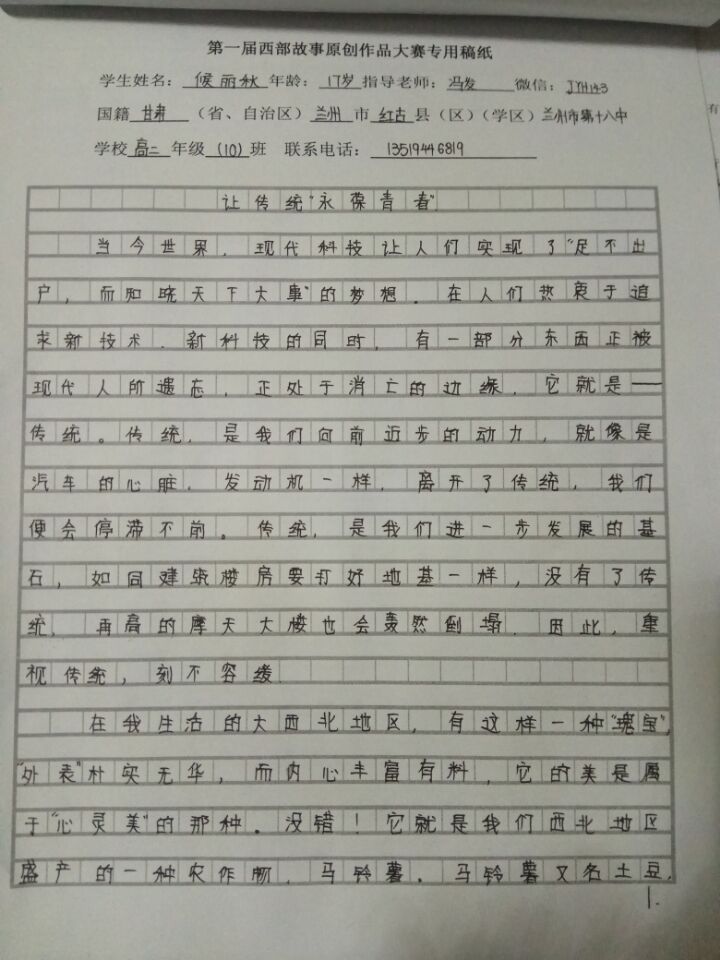 第一届西部故事原创作品大赛专用稿纸
学生姓名：候丽秋 年龄：17岁 指导老师：冯发 微信：JYH143
国籍 甘肃 （省、自治区）兰州 市 红古 县（区）（学区）兰州市第十八中
学校 高二 年级（10）班 联系电话：13519446819
让传统“永葆青春”
当今世界，现代科技让人们实现了“足不出
户，而知晓天下大事”的梦想．在人们热衷于追
求新技术．新科技的同时，有一部分东西正被
现代人所遗忘，正处于消亡的边缘，它就是——
传统。传统，是我们向前迈步的动力，就像是
汽车的心脏，发动机一样，离开了传统，我们
便会停滞不前。传统，是我们进一步发展的基
石，如同建筑楼房要打好地基一样，没有了传
统，再高的摩天大楼也会轰然倒塌．因此，重
视传统，刻不容缓
在我生活的大西北地区，有这样一种“瑰宝”，
“外表”朴实无华，而内心丰富有料，它的美是属
于“心灵美”的那种。没错！它就是我们西北地区
盛产的一种农作物，马铃薯。马铃薯又名土豆，
1.
有